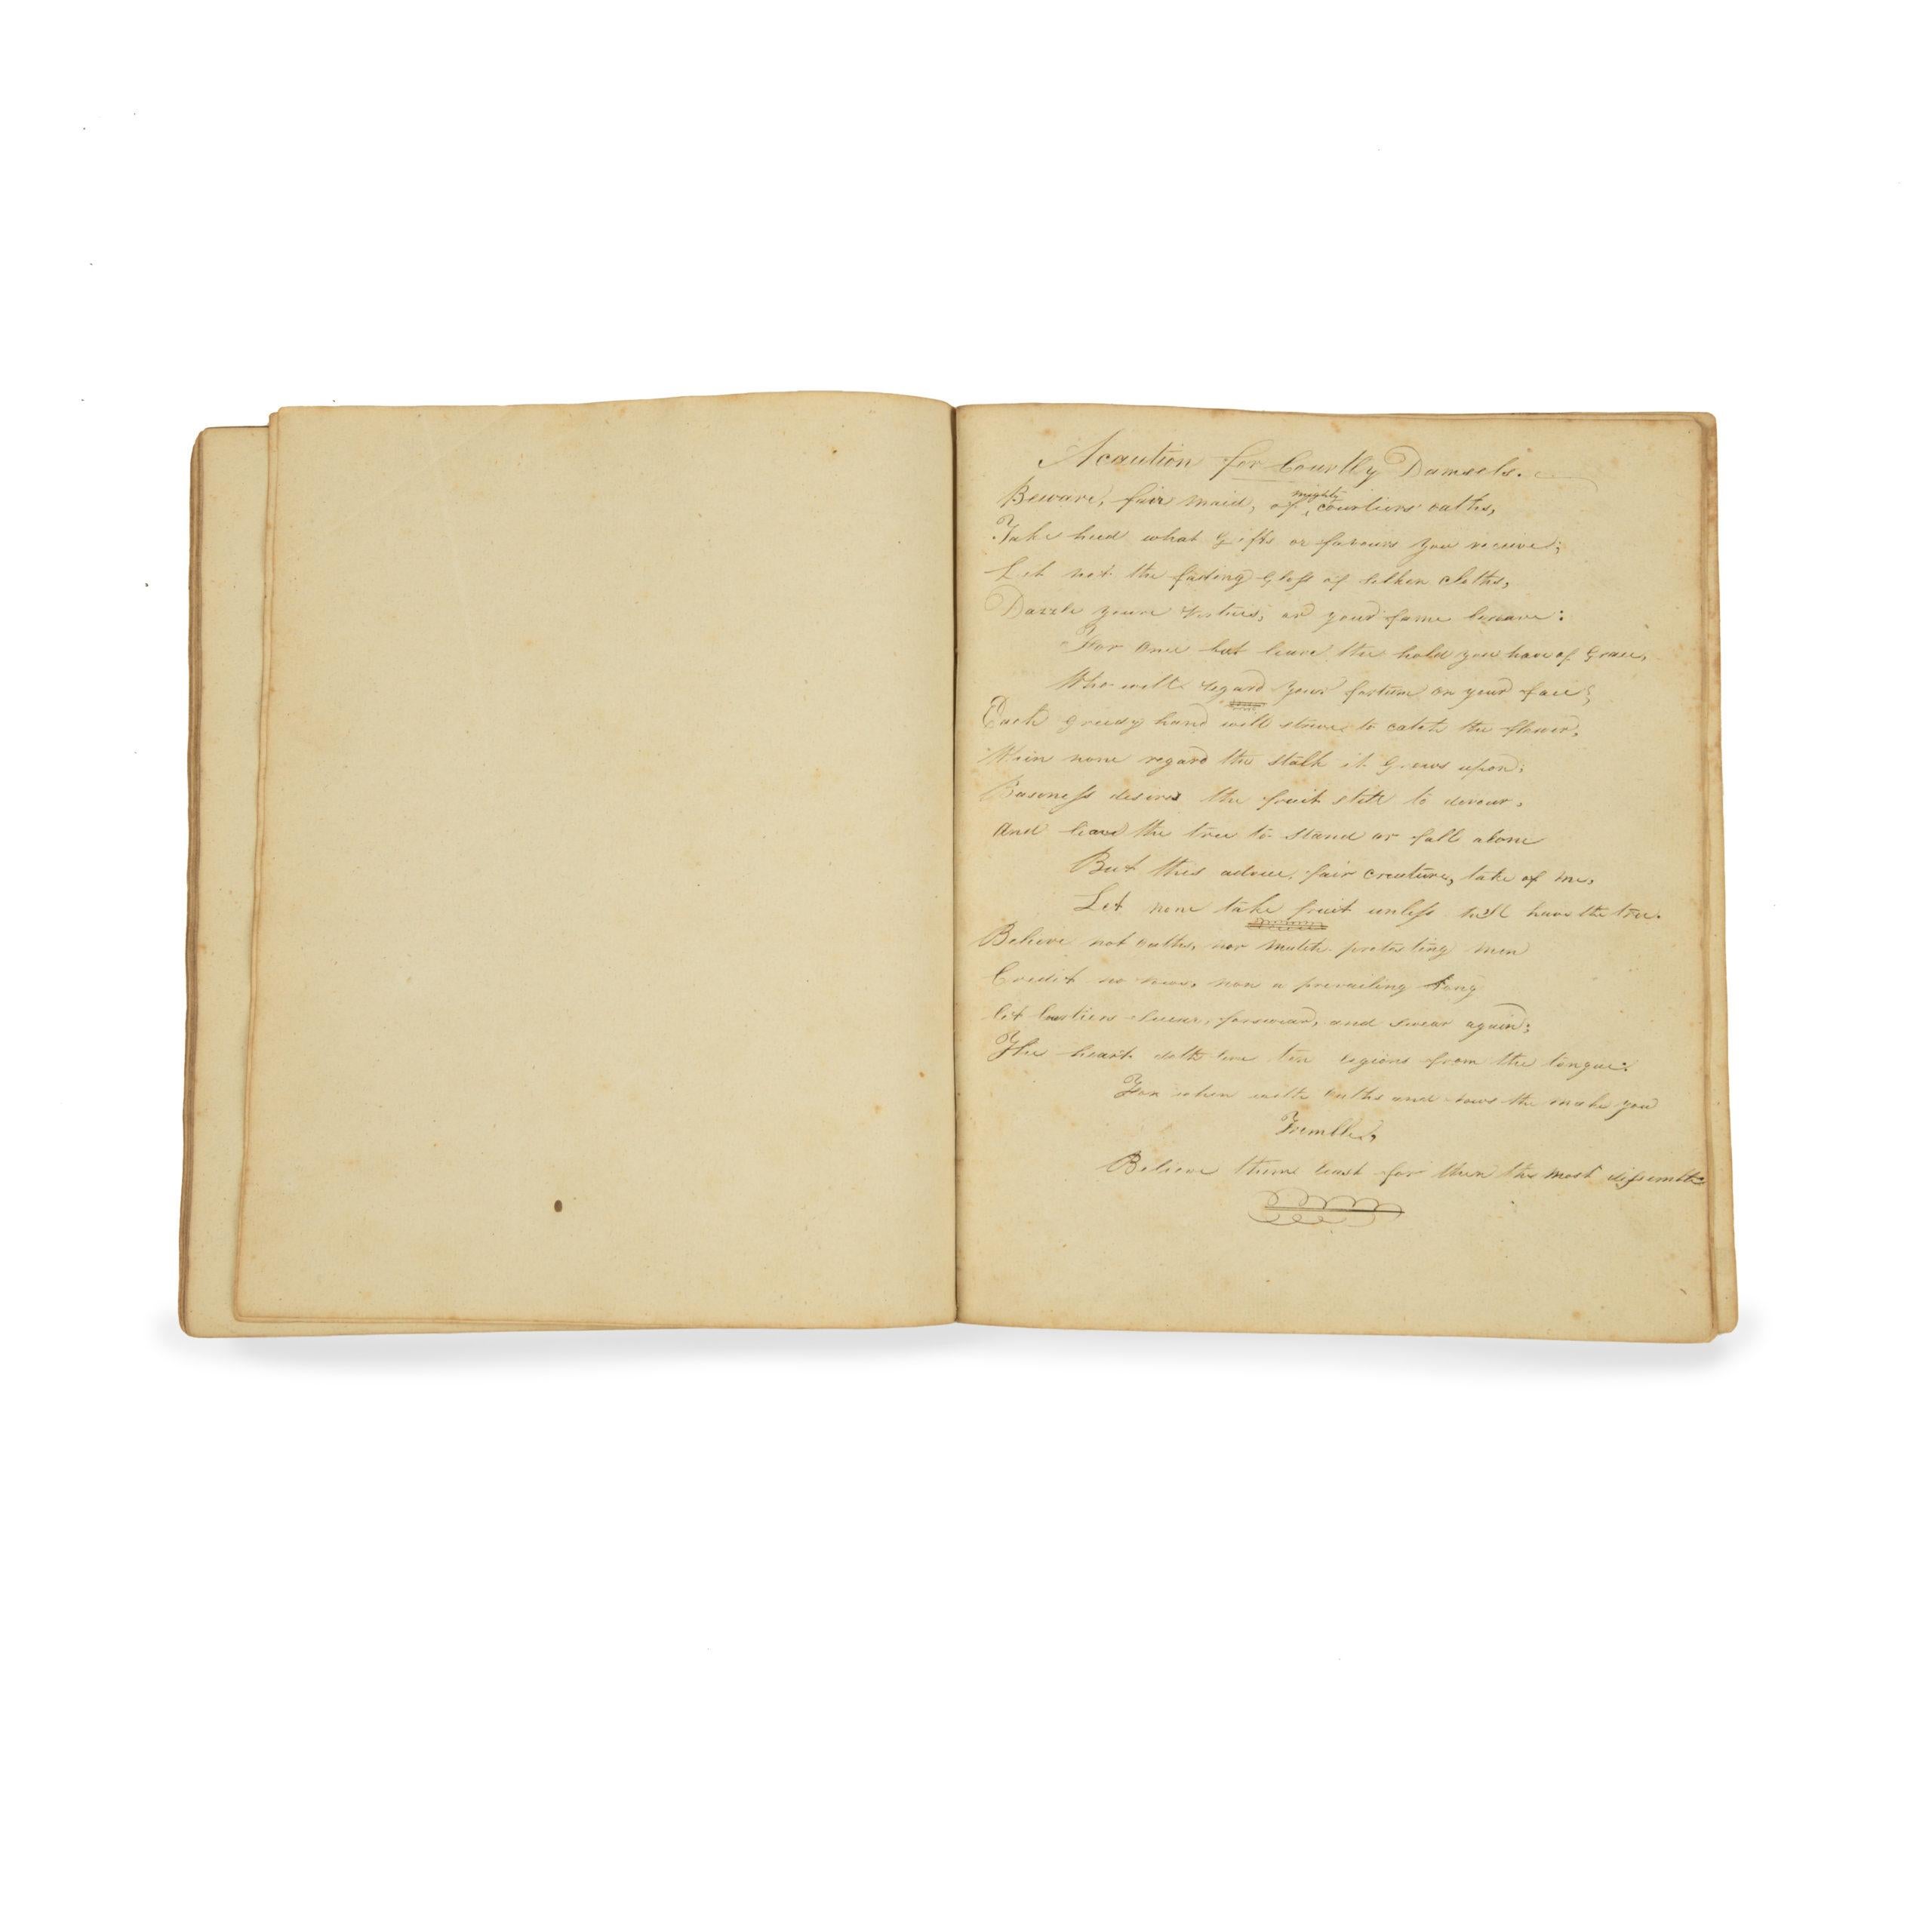 A caution for Courtly Damsels.
Beware, fair maid, of mighty courtiers oaths,
Take heed what Gifts or favours you receive;
Let not the fading Gloss of silken Cloths,
Dazzle youre Vertues, or your fame bereave:
For once but leave the hold you have of Grace,
Who will regard your fortune or your face;
Each greedy hand will strive to catch the flower,
When none regard the stalk it Grows upon;
Baseness desires the fruit still to devour,
And leave the tree to stand or fall alone
But this advice, fair Creature, take of me,
Let none take fruit unless have the tree.
Believe not oaths, nor mutch protesting men
Credit no vows, non a prevailing Song
let Courtiers swear, forswear, and swear again;
The heart doth live ten regions from the tongue:
For when with Oaths and vows the make you
Tremble,
Believe them least for then the most dissemble